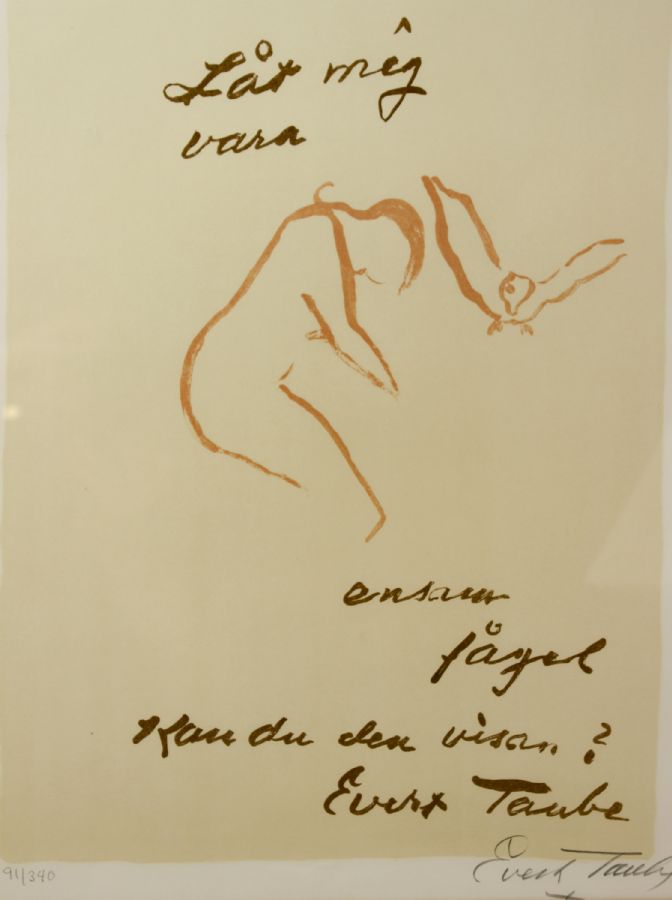 Låt mig
vara
ensam
fågel
Kan du den visan?
Evert Taube
Evert Taube
91/340